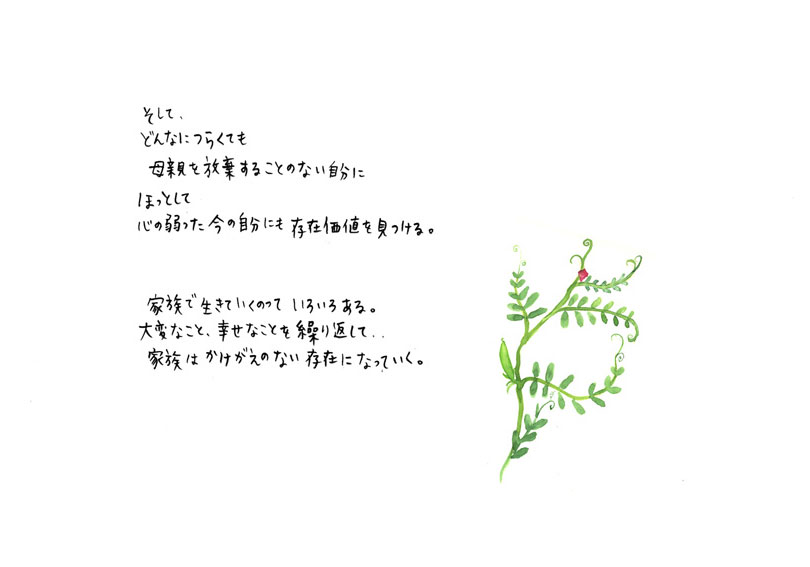 そして、
どんなにつらくても
母親を放棄することのない自分に
ほっとして
心の弱った今の自分にも存在価値を見つける。
家族で生きていくのって いろいろある。
大変なこと、幸せなことを繰り返して..
家族はかけがえのない存在になっていく。